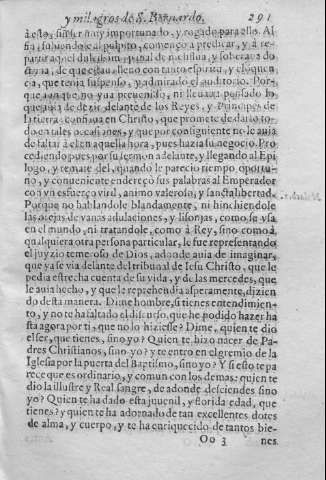 y milagros de S. Bernardo. 291
à esto, sin ser muy importunado, y rogado para ello. Al
fin, subiendose al pulpito, començo a predicar, y à re-
partir aquel dulcissimo panal de su celestial, y soberana do
ctrina, de que estaua lleno con tanto espiritu, y eloquen
cia, que tenia suspenso, y admirado el auditorio. Por-
que aunque no yua preuenido, ni lleuaua pensado lo
que auia de dezir delante de los Reyes, y Principes de
la tierra: confiaua en Christo, que promete de darlo to-
do en tales occasiones, y que por consiguiente no le auia
de faltar à el en aquella hora, pues hazia su negocio. Pro
cediendo pues por su sermon adelante, y llegando al Epi
logo, y remate del, quando le parecio tiempo oportu-
no, y conueniente endereço sus palabras al Emperador
con vn esfuerço viril, animo valeroso, y santa libertad.
Porque no hablandole blandamente, ni hinchiendole
las orejas de vanas adulaciones, y lisonjas, como se vsa
en el mundo, ni tratandole, como à Rey, sino como à
qualquiera otra persona particular, le fue representando
el juyzio temeroso de Dios, adonde auia de imaginar,
que ya se via delante del tribunal de Iesu Christo, que le
pedia estrecha cuenta de su vida, y de las mercedes, que
le auia hecho, y que le reprehendia asperamente, dizien
do desta manera. Dime hombre, si tienes entendimien-
to, y no te ha faltado el discurso, que he podido hazer ha
sta agora por ti, que no lo hiziesse? Dime, quien te dio
el ser, que tienes, sino yo? Quien te hizo nacer de Pa-
dres Christianos, sino yo? y te entro en el gremio de la
Iglesia por la puerta del Baptismo, sino yo? Y si esto te pa
rece que es ordinario, y comun con los demas: quien te
dio la illustre y Real sangre, de adonde desciendes sino
yo? Quien te ha dado esta juuenil, y florida edad, que
tienes? y quien te ha adornado de tan excellentes dotes
de alma, y cuerpo, y te ha enriquecido de tantos bie-
Oo 3 nes.